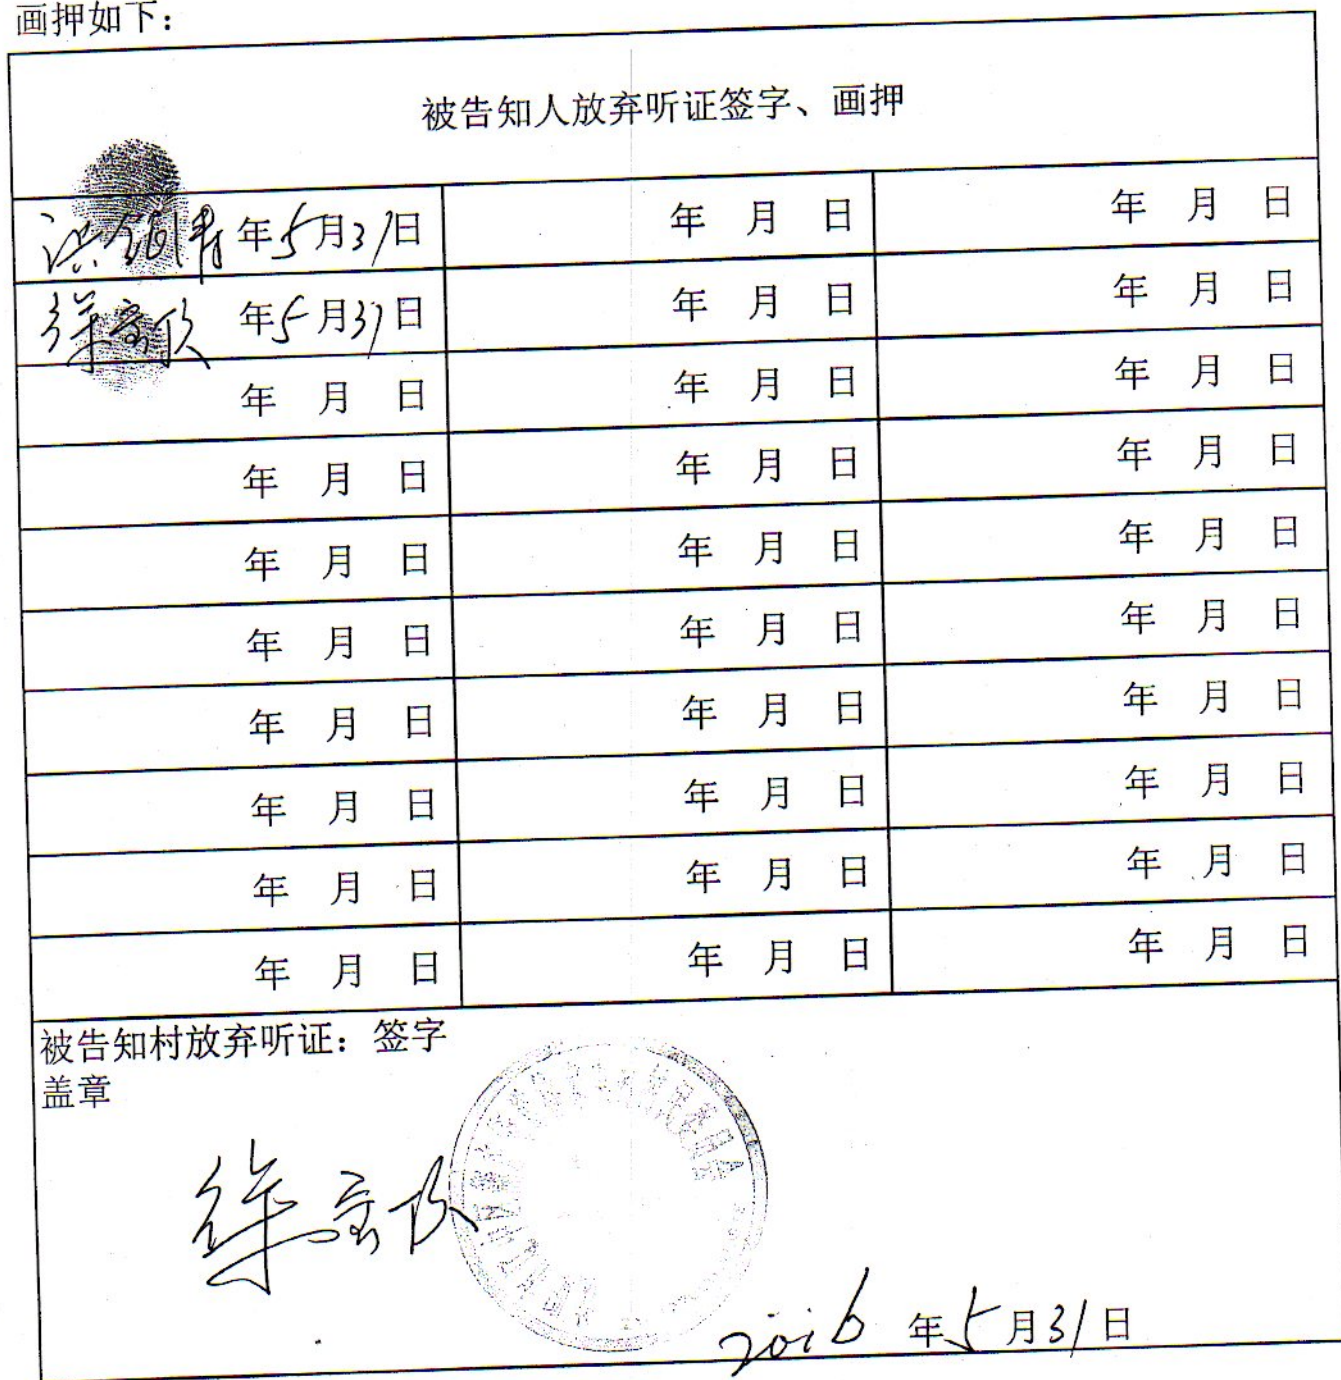 画押如下：
被告知人放弃听证签字、画押
年5月31日 年 月 日 年 月 日
徐 年5月31日 年 月 日 年 月 日
年 月 日 年 月 日 年 月 日
年 月 日 年 月 日 年 月 日
年 月 日 年 月 日 年 月 日
年 月 日 年 月 日 年 月 日
年 月 日 年 月 日 年 月 日
年 月 日 年 月 日 年 月 日
年 月 日 年 月 日 年 月 日
年 月 日 年 月 日 年 月 日
被告知村放弃听证：签字
盖章
徐
2016年5月31日